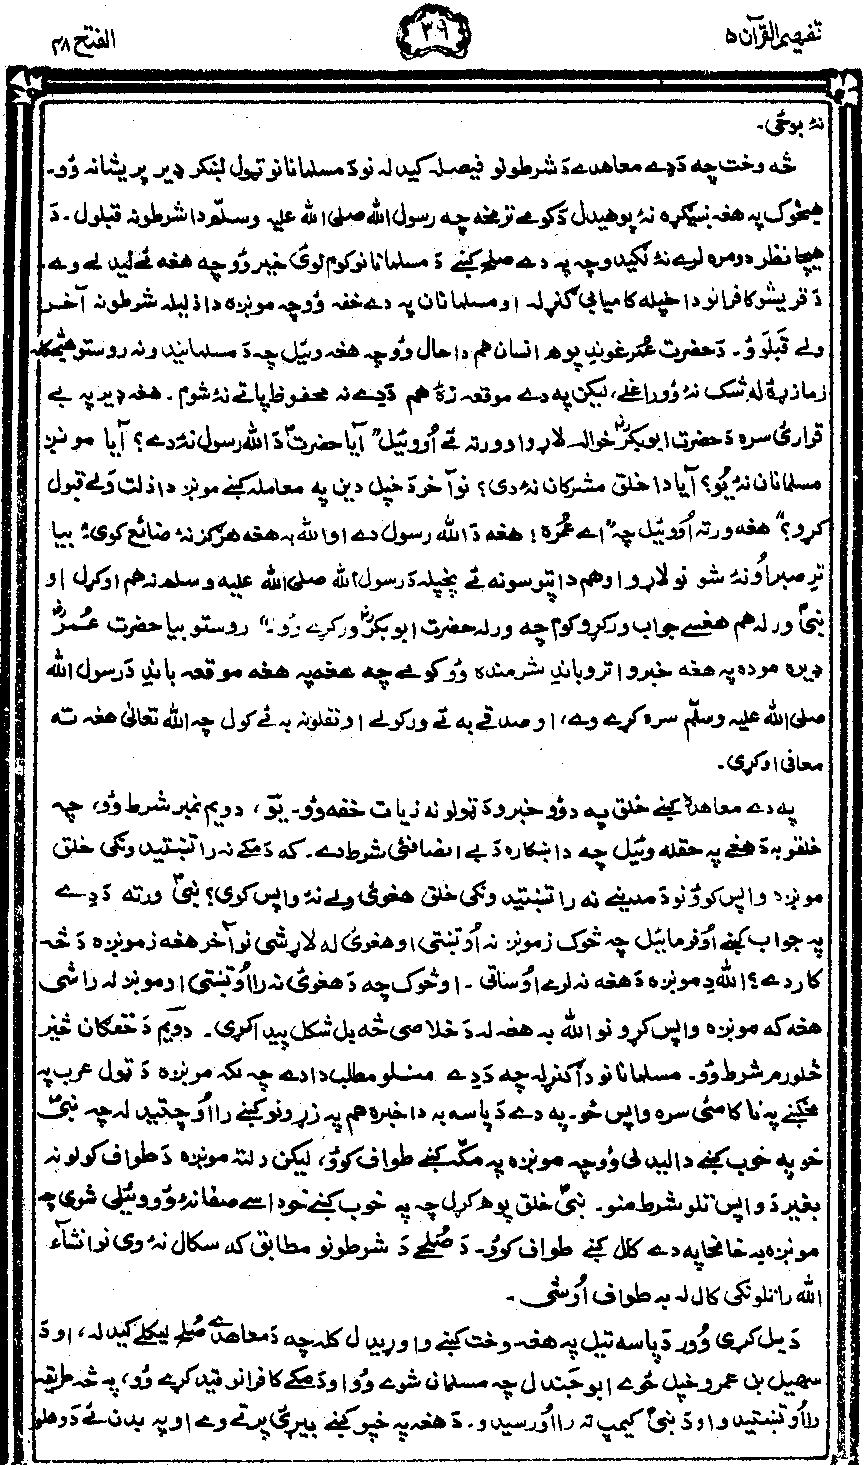 تفهیم القرآن ۵
۳۹
الفتح ۴۸
نۀ بوځی۔
څه وخت چه دَ دے معاهدے دَ شرطونو فیصله کیدله نو دَ مسلمانانو ټول لښکر ډیر پریشانه وُو۔
هیڅوک په هغه نه پوهیدل دَ کومے ترمخه چه رسول الله صلی الله علیه وسلّم دا شرطونه قبلول۔ دَ
هیچا نظر دومره لرے نۀ لګیدو چه په دے صلح کښے دَ مسلمانانو کوم لوئ خبر وُو چه هغه ئے لیدلے وے۔
دَ قریشو کافرانو دا خپله کامیابی ګنړله او مسلمانان په دے خفه وُو چه مونږه دا ذلیله شرطونه آخر
ولے قبلَوُو۔ دَ حضرت عمرؓ غوندِ پوه انسان هم دا حال وُو چه هغه وئیل چه دَ مسلمانیدو نه روستو هیڅکله
زما زړۀ له شک نۀ وُو راغلے، لیکن په دے موقعه زۀ هم دَ دے نه محفوظ پاتے نۀ شوم۔ هغه ډیر په بے
قرارئ سره دَ حضرت ابوبکرؓ خواله لاړو او ورته ئے اُووئیل "آیا حضرتؐ دَ الله رسول نۀ دے؟ آیا مونږ
مسلمانان نۀ یُو؟ آیا دا خلق مشرکان نۀ دی؟ نو آخر دَ خپل دین په معامله کښے مونږ دا ذلت ولے قبول
کړو؟" هغه ورته اُووئیل چه "اے عُمره! هغه دَ الله رسول دے او الله به هغه هرګز نۀ ضائع کوی"؛ بیا
ترِ صبر اُونۀ شو نو لاړو او هم دا تپوسونه ئے پخپله دَ رسول الله صلی الله علیه وسلم نه هم اوکړل او
نبیؐ ورله هم هغسے جواب ورکړو کوم چه ورله حضرت ابوبکرؓ ورکړے وُو۔" روستو بیا حضرت عُمرؓ
ډیره موده په هغه خبرو اترو باندِ شرمنده وُو کومے چه هغه په هغه موقعه باندِ دَ رسول الله
صلی الله علیه وسلّم سره کړے وے، او صدقے به ئے ورکولے او نفلونه به ئے کول چه الله تعالیٰ هغه ته
معافی اوکړی۔
په دے معاهدۀ کښے خلق په دوُو خبرو دَ ټولو نه زیات خفه وُو۔ یَوّ، دویم نمبر شرط وُو، چه
خلقو به دَ هغے په حقله وئیل چه دا ښکاره دَ بے انصافئ شرط دے۔ که دَ مکے نه راتښتیدونکی خلق
مونږه واپس کوُو نو دَ مدینے نه راتښتیدونکی خلق هغوئ ولے نۀ واپس کوی؟ نبیؐ ورته دَ دِے
په جواب کښے اُوفرمائیل چه څوک زمونږ نه اُوتښتی او هغوئ له لاړ شی نو آخر هغه زمونږه دَ څه
کار دے؟ الله دِ مونږه دَ هغه نه لرے اُوساتی۔ او څوک چه دَ هغوئ نه رااُوتښتی او مونږ له راشی
هغه که مونږه واپس کړو نو الله به هغه له دَ خلاصی څه بل شکل پیدا کړی۔ دویَم دَ خفګان څیز
څلورم شرط وُو۔ مسلمانانو دا ګنړله چه دَ دِے منلو مطلب دا دے چه ګنی مونږه دَ ټول عرب په
مخکښے په ناکامئ سره واپس څو۔ په دے دَ پاسه به دا خبره هم په زړونو کښے رااُوچتیدله چه نبیؐ
خو په خوب کښے دا لیدلی وُو چه مونږه په مکّه کښے طواف کوُو، لیکن دلته مونږه دَ طواف کولو نه
بغیر دَ واپس تللو شرط منو۔ نبیؐ خلق پوهه کړل چه په خوب کښے خو داسے صفا نۀ وُو وئیلی شوی چه
مونږه به خامخا په دے کال کښے طواف کوُو۔ دَ صُلحے دَ شرطونو مطابق که سکال نۀ وی نو انشآء
الله راتلونکی کال له به طواف اُوشی۔
دَ بل کړی وُور دَ پاسه تیل په هغه وخت کښے واوړیدل کله چه دَ معاهدے صُلح لیکلے کیدله، او دَ
سهیل بن عمرو خپل ځوے ابوجَندل چه مسلمان شوے وُو او دَ مکے کافرانو قید کړے وُو، په څه طریقه
رااُوتښتیدو او دَ نبیؐ کیمپ ته رااُورسیدو۔ دَ هغه په خپو کښے بیړئ پرتے وے او په بدن ئے دَ وهلو